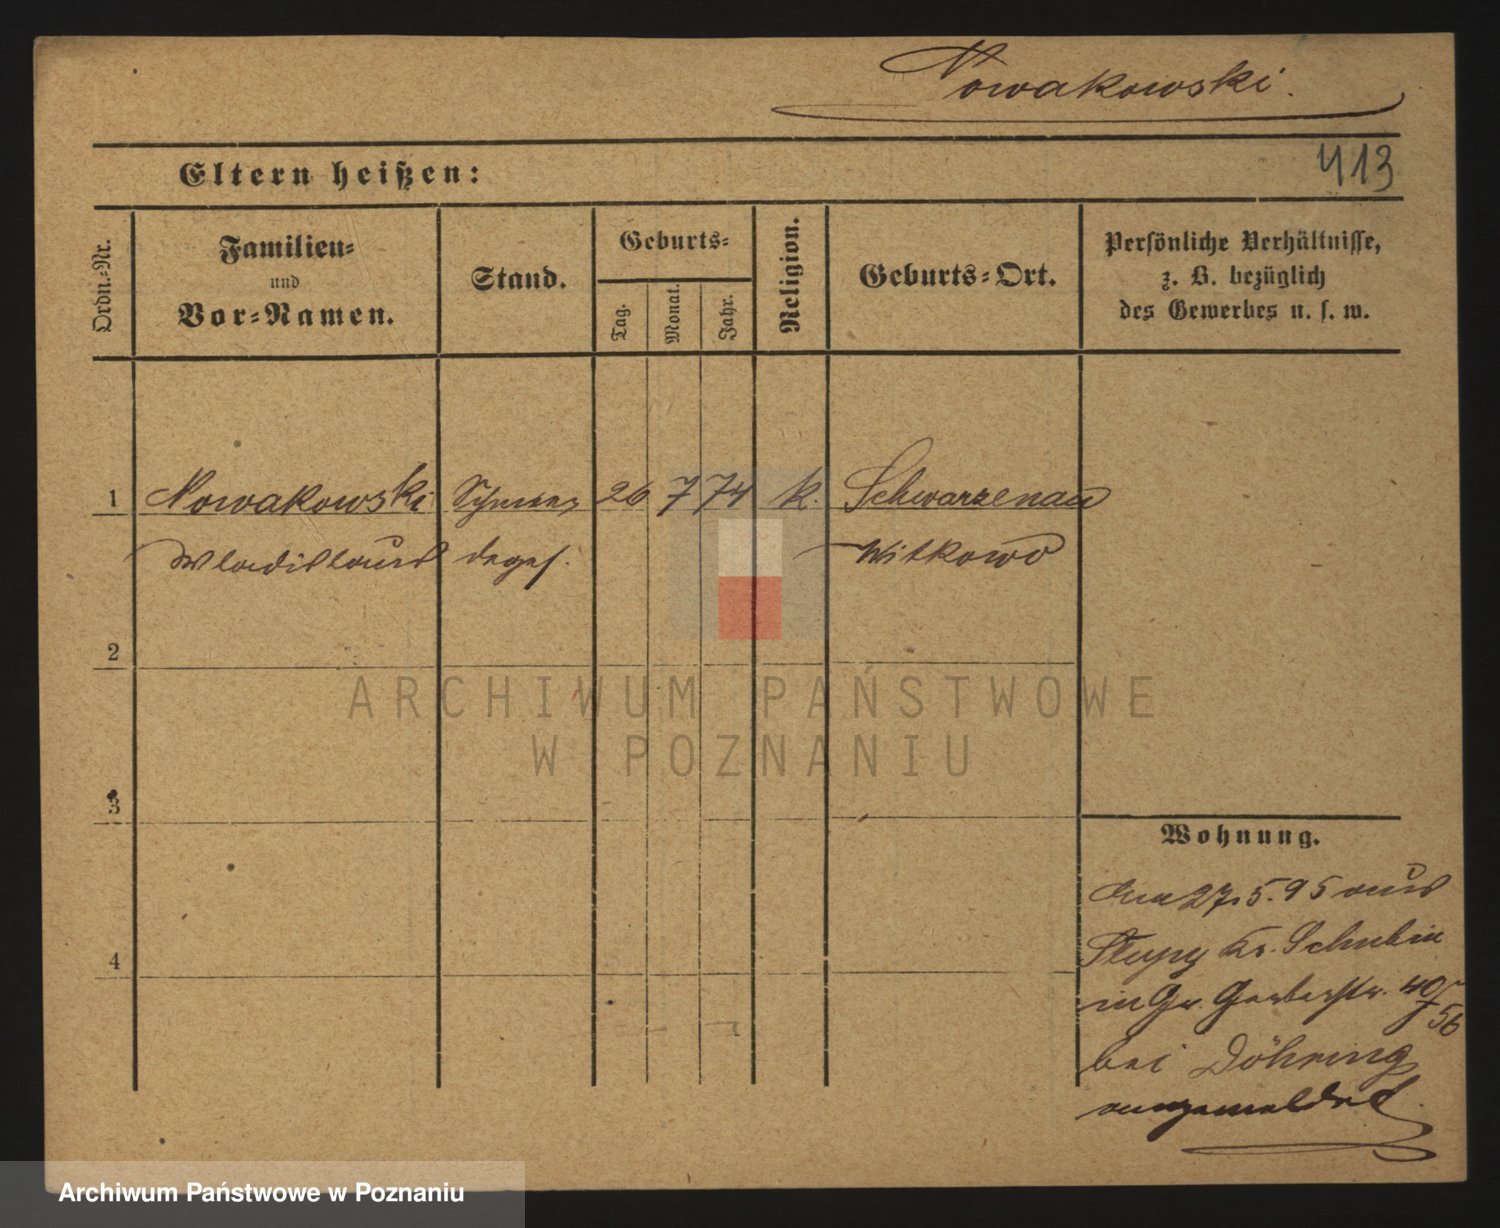 Nowakowski.
Eltern heißen:
413
Ordn.-Nr.
Familien-
und
Vor-Namen.
Stand.
Geburts-
Tag.
Monat.
Jahr.
Religion.
Geburts-Ort.
Persönliche Verhältnisse,
z. B. bezüglich
des Gewerbes u. s. w.
1 Nowakowski 26 7 74 k. Schwarzenau
Wladislaus Witkowo
2
3
4
Wohnung.
27.5.95 aus
Slupy Kr. Schubin
in Gr. Gerberstr. 40/56
bei Döhring
angemeldet.
ARCHIWUM PAŃSTWOWE
W POZNANIU
Archiwum Państwowe w Poznaniu